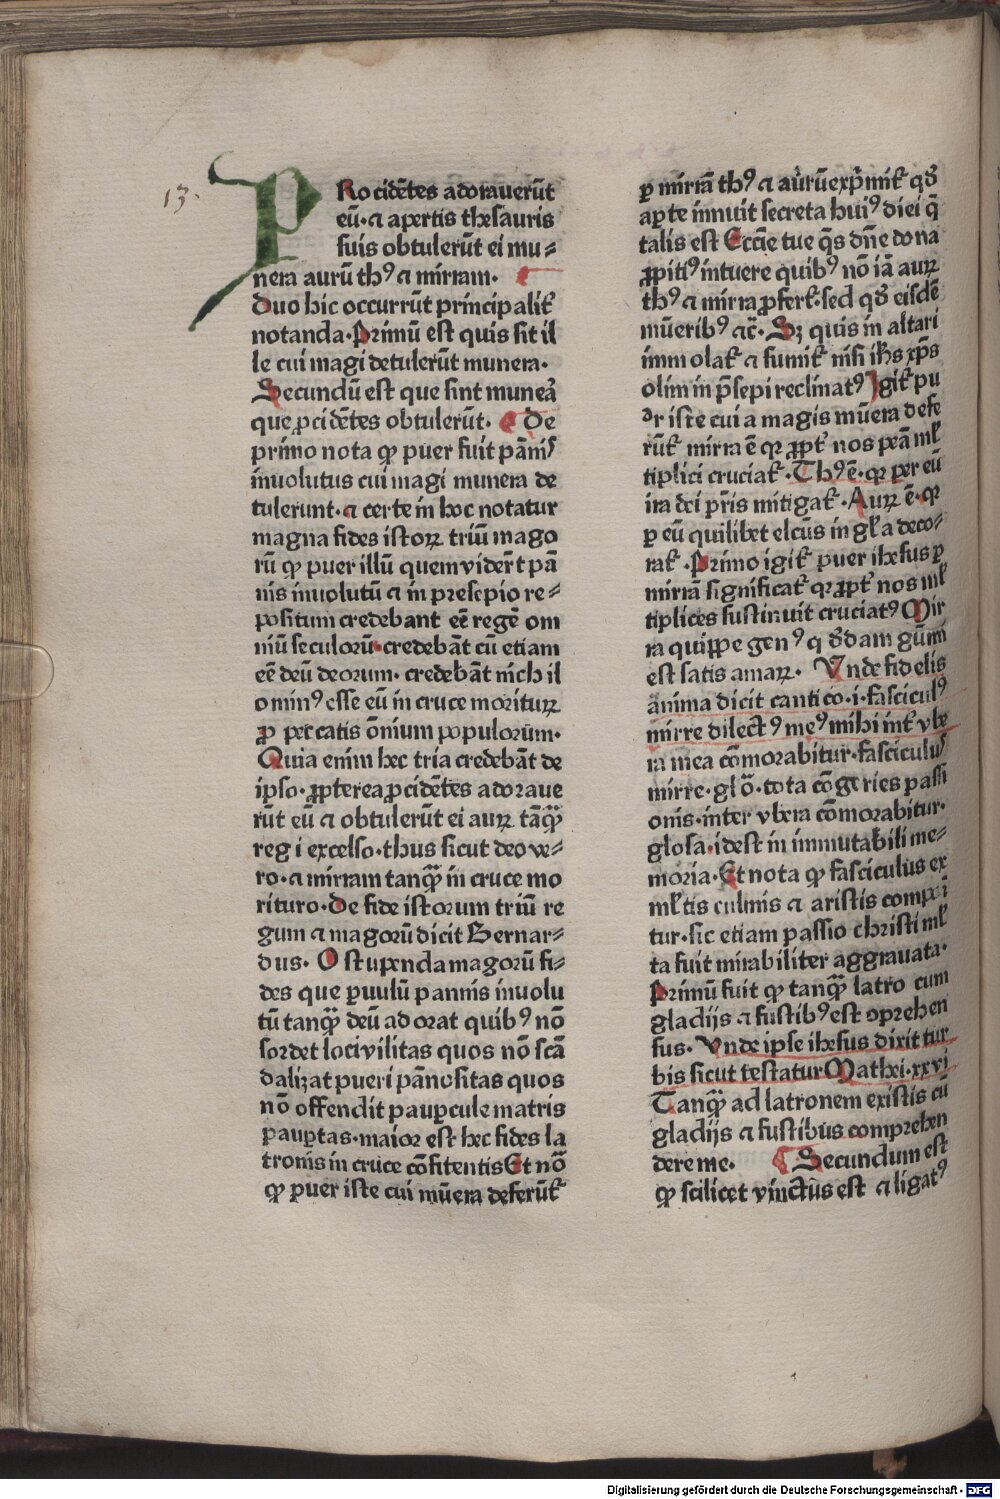 13.
PRocidētes adorauerūt
eū·⁊ apertis thesauris
suis obtulerūt ei mu⸗
nera aurū thꝰ ⁊ mirram·
Duo hic occurrūt principalit̄
notanda·Primū est quis sit il
le cui magi detulerūt munera·
Secundū est que sint munea᷒
que ꝓcidētes obtulerūt· De
primo nota ꝙ puer fuit pānis
inuolutus cui magi munera de
tulerunt·⁊ certe in hoc notatur
magna fides istoꝝ triū mago
rū ꝙ puer illū quem viderūt pā
nis inuolutū ⁊ in presepio re⸗
positum credebant eē regē om
niū seculorū·credebāt cū etiam
eē deū deorum·credebāt nich il
o minꝰ esse eū in cruce morituꝝ
ꝓ peccatis ōnium populorum·
Quia enim hec tria credebāt de
ipso·ꝓpterea ꝓcidētes adoraue
rūt eū ⁊ obtulerūt ei auꝝ tāꝙ̄
regi excelso·thus sicut deo ve⸗
ro·⁊ mirram tanꝙ̄ in cruce mo
rituro·De fide istorum triū re
gum ⁊ magorū dicit Bernar⸗
dus· O stupenda magorū fi⸗
des que ꝑuulū pannis inuolu
tū tanꝙ̄ deū adorat quibꝰ nō
sordet locivilitas quos nō scā
dalizat pueri pānositas quos
nō offendit pauꝑcule matris
pauꝑtas·maior est hec fides la
tronis in cruce cōfitentis Et nō
ꝙ puer iste cui mūera deferūt̄
ꝑ mirrā thꝰ ⁊ aurū exp̄mit̄ qd᷒
aꝑte innuit secreta huiꝰ diei q̄
talis est Eccīe tue q̄s dn̄e dona
ꝓpitiꝰ intuere quibꝰ nō iā auꝝ
thꝰ ⁊ mirra ꝓfert̄·sed qd᷒ eisdē
mūeribꝰ ⁊c̄· Sꝫ quis in altari
immolat̄ ⁊ sumit̄ nisi ih̄s xp̄s
olim in p̄sepi reclinatꝰ Igit̄ pu
er iste cui a magis mūera defe
rūt̄ mirra ē qꝛ ꝓpt̄ nos peā ml̄
tiplici cruciat̄·Thꝰ ē·qꝛ per eū
ira dei p̄ris mitigat̄·Auꝝ ē·qꝛ
ꝑ eū quilibet elcūs in gl̄a deco⸗
rat̄·Primo igit̄ puer ihesus ꝑ
mirrā significat̄ qꝛ ꝓpt̄ nos ml̄
tiplices sustinuit cruciatꝰ Mir
ra quippe genꝰ q d᷒dam gūmi
est satis amaꝝ· Vnde fidelis
anima dicit cantico·i·fasciculꝰ
mirre dilectꝰ meꝰ mihi int̄ vbe
ra mea cōmorabitur·fasciculus
mirre·glō·tota cōgeries passi
onis·inter vbera cōmorabitur·
glosa·idest in immutabili me⸗
moria·Et nota ꝙ fasciculus ex
ml̄tis culmis ⁊ aristis componi
tur·sic etiam passio christi ml̄
ta fuit mirabiliter aggrauata·
Primū fuit ꝙ tanꝙ̄ latro cum
gladijs ⁊ fustibꝰ est oprehen
sus· Vnde ipse ihesus dixit tur
bis sicut testatur Mathei·xxvi
Tanꝙ̄ ad latronem existis cū
gladijs ⁊ fustibus comprehen
dere me· Secundum est
ꝙ scilicet vinctus est ⁊ ligatꝰ
Digitalisierung gefördert durch die Deutsche Forschungsgemeinschaft - DFG